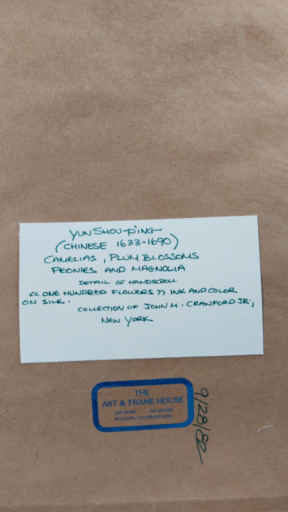 YUN SHOU-PING
(CHINESE 1633-1690)
CAMELIAS, PLUM BLOSSOMS
PEONIES AND MAGNOLIA
DETAIL OF HANDSCROLL
<< ONE HUNDRED FLOWERS >> INK AND COLOR
ON SILK.
COLLECTION OF JOHN M. CRAWFORD JR,
NEW YORK
THE
ART & FRAME HOUSE
9/28/82